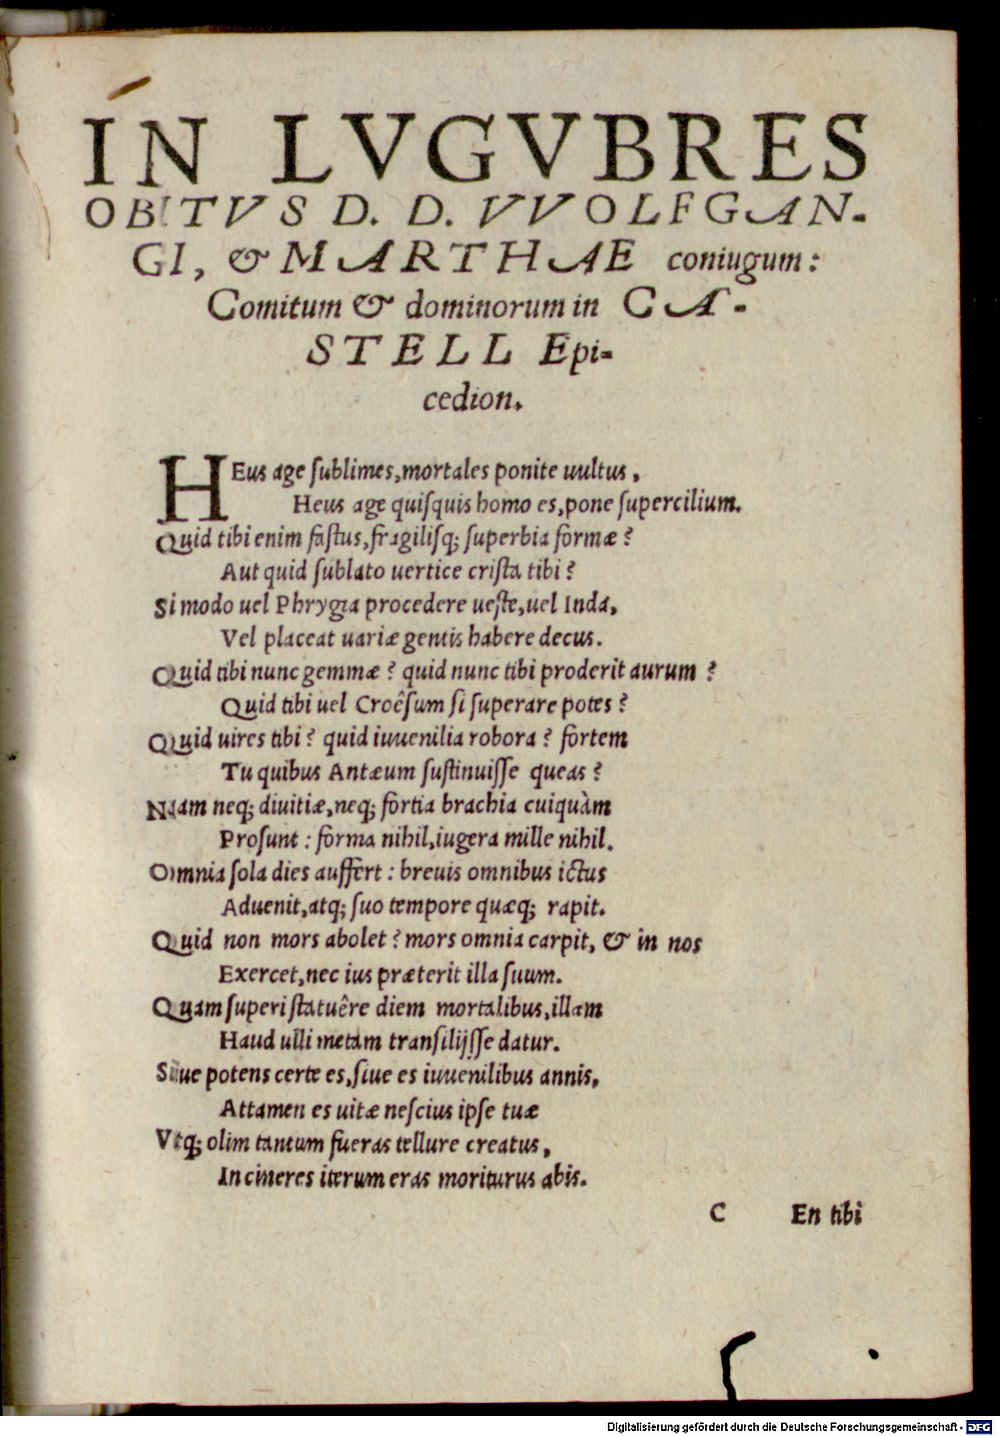 IN LVGVBRES
OBITVS D. D. VVOLFGAN-
GI, & MARTHAE coniugum:
Comitum & dominorum in CA-
STELL Epi-
cedion.
HEus age ſublimes, mortales ponite uultus,
Heus age quiſquis homo es, pone ſupercilium.
Quid tibi enim faſtus, fragiliſq; ſuperbia formæ?
Aut quid ſublato uertice criſta tibi?
Si modo uel Phrygia procedere ueſte, uel Inda,
Vel placeat uariæ gentis habere decus.
Quid tibi nunc gemmæ? quid nunc tibi proderit aurum?
Quid tibi uel Croêſum ſi ſuperare potes?
Quid uires tibi? quid iuuenilia robora? fortem
Tu quibus Antæum ſuſtinuiſſe queas?
Nam neq; diuitiæ, neq; fortia brachia cuiquàm
Proſunt: forma nihil, iugera mille nihil.
Omnia ſola dies auffert: breuis omnibus ictus
Aduenit, atq; ſuo tempore quæq; rapit.
Quid non mors abolet? mors omnia carpit, & in nos
Exercet, nec ius præterit illa ſuum.
Quam ſuperi ſtatuêre diem mortalibus, illam
Haud ulli metam tranſilijſſe datur.
Siue potens certe es, ſiue es iuuenilibus annis,
Attamen es uitæ neſcius ipſe tuæ
Vtq; olim tantum fueras tellure creatus,
In cineres iterum eras moriturus abis.
C En tibi
Digitalisierung gefördert durch die Deutsche Forschungsgemeinschaft - DFG